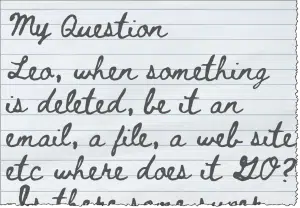 My Question
Leo, when something
is deleted, be it an
email, a file, a web site
etc where does it GO?
Is there some super